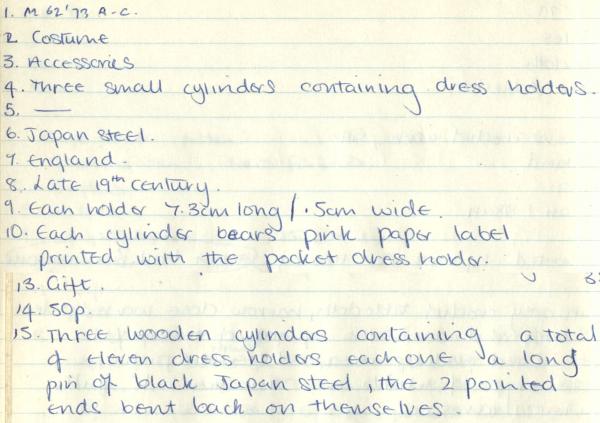 1. M 62'73 A-C.
2. Costume
3. Accessories
4. Three small cylinders containing dress holders.
5. —
6. Japan steel.
7. England.
8. Late 19th century.
9. Each holder 7.3cm long / .5cm wide.
10. Each cylinder bears pink paper label
printed with the pocket dress holder.
13. Gift.
14. 50p.
15. Three wooden cylinders containing a total
of eleven dress holders each one a long
pin of black Japan steel, the 2 pointed
ends bent back on themselves.